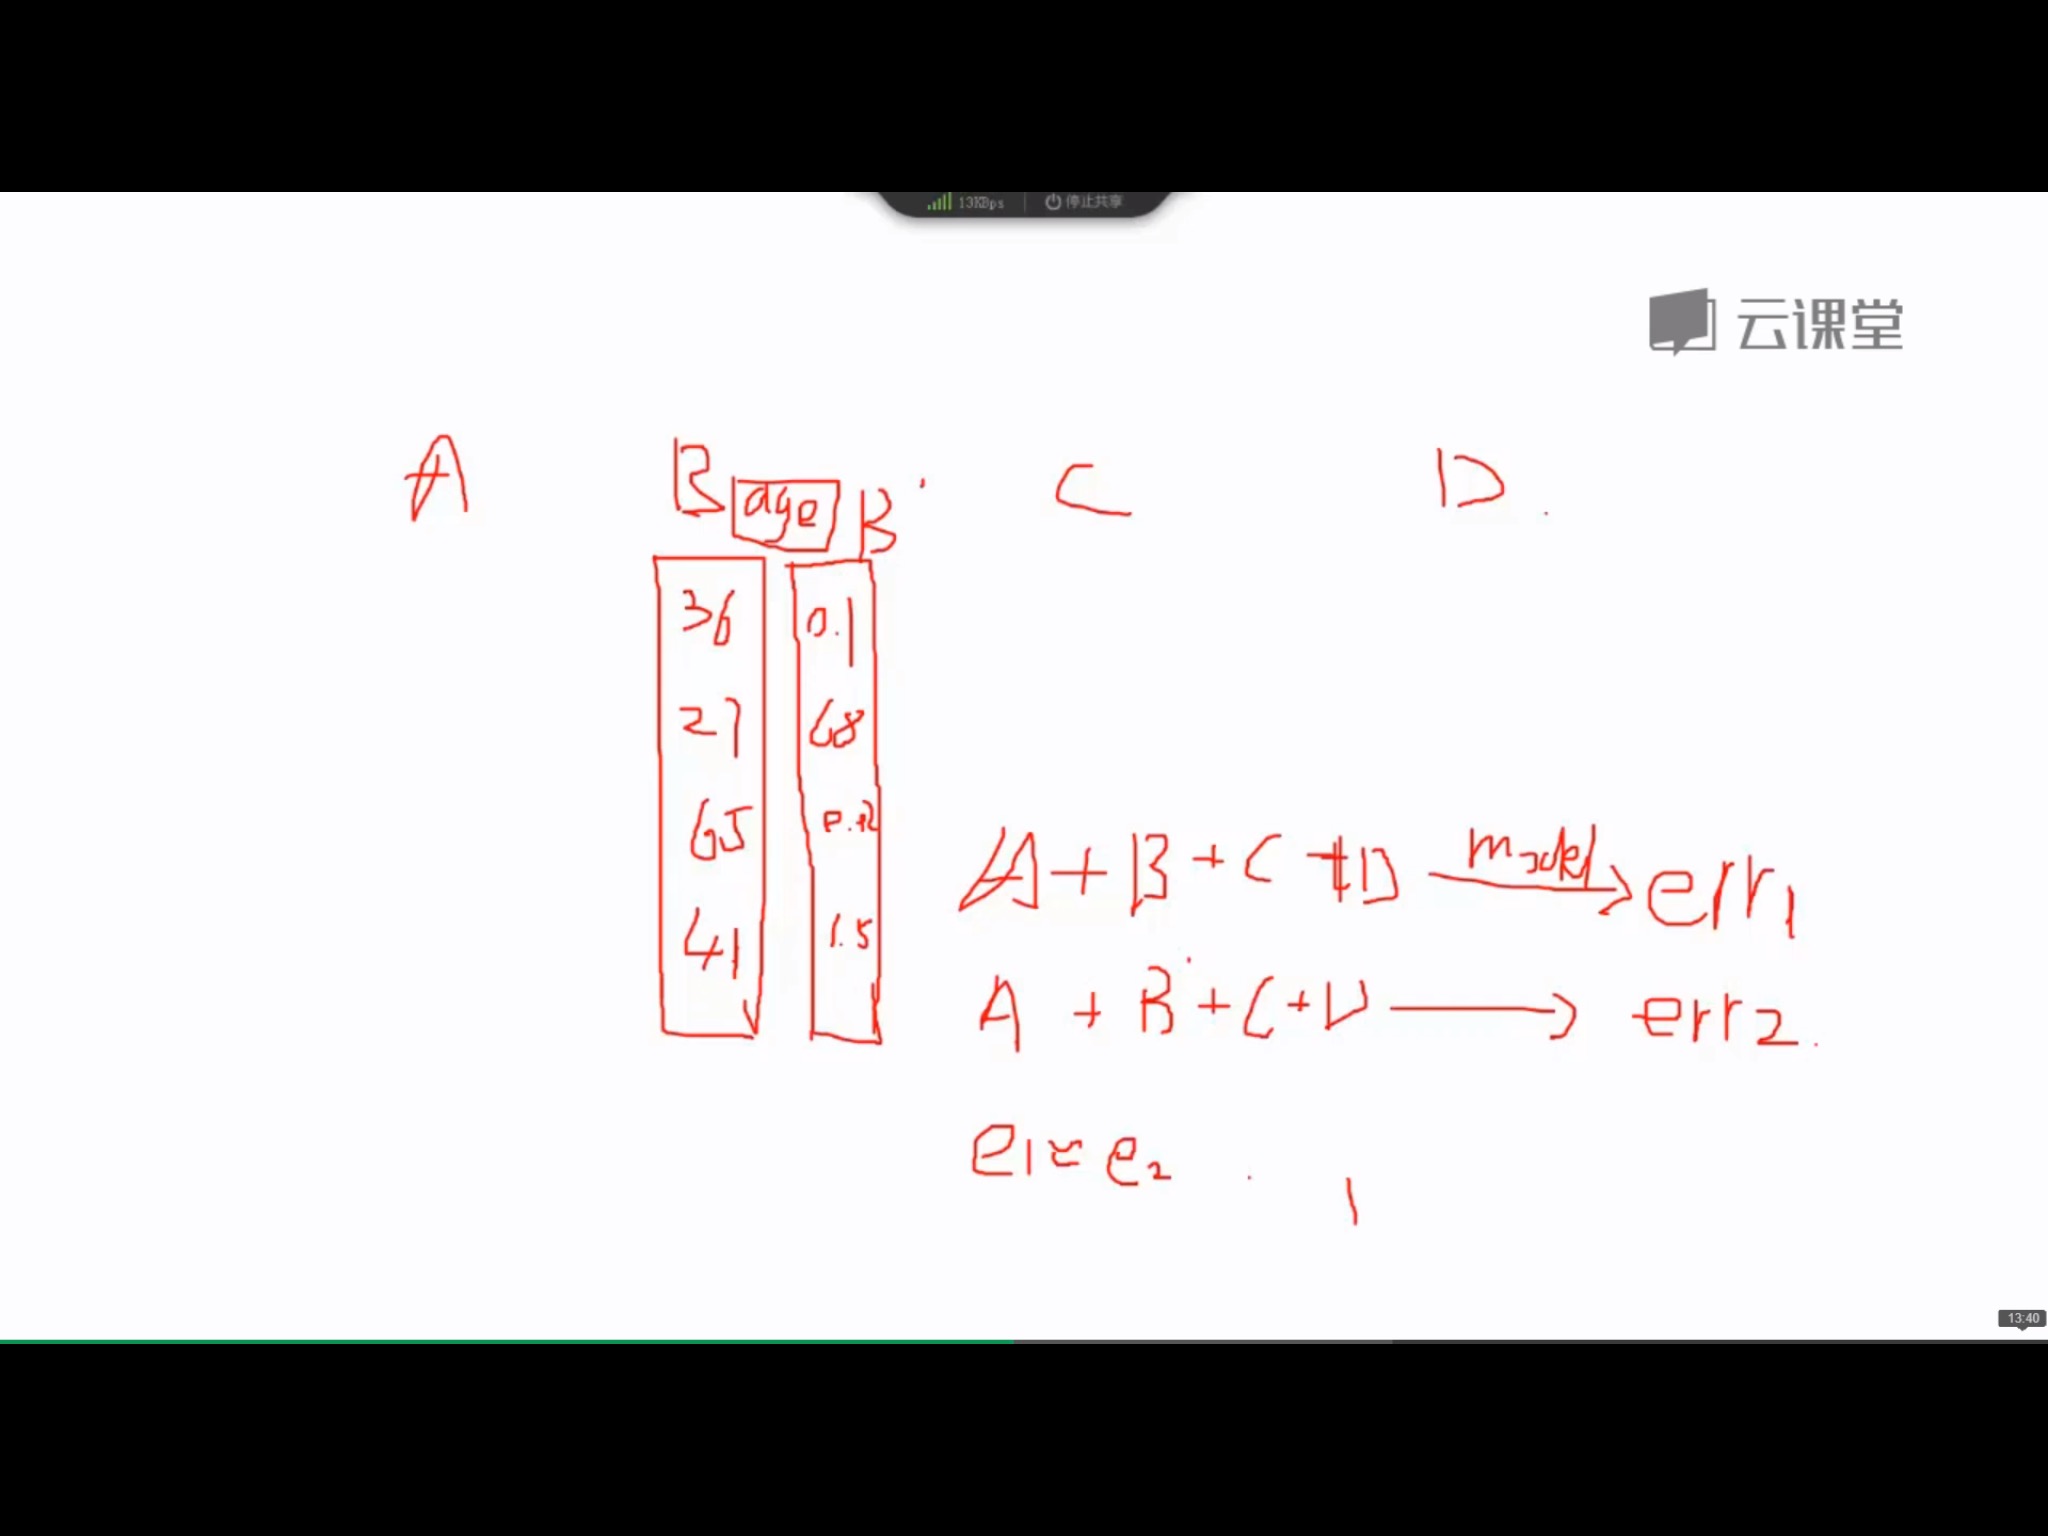 13KBps 停止共享
云课堂
A B age B' C D.
36 0.1
27 68
65
41 1.5
A+B+C+D model err1
A+B'+C+D err2.
e1≈e2
13:40